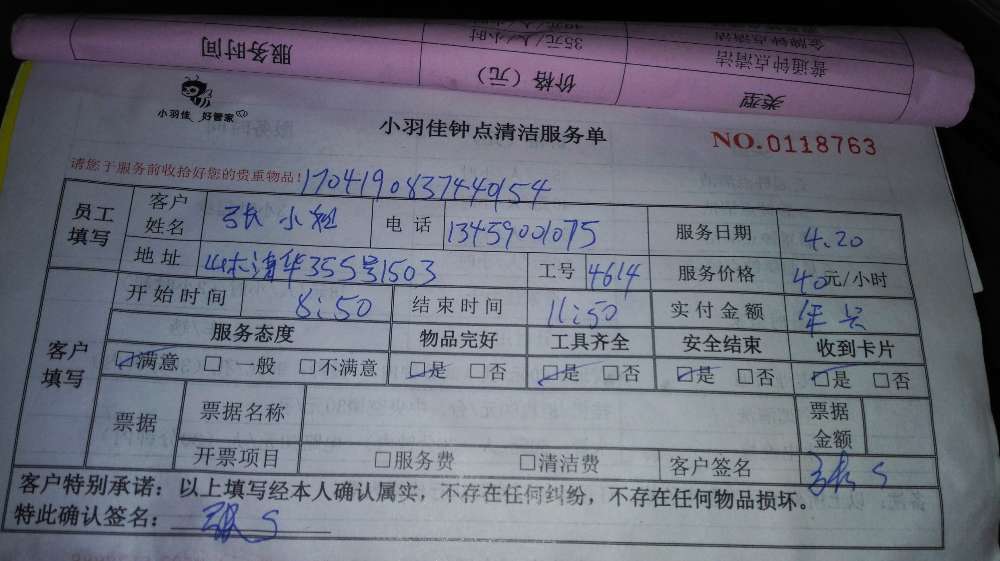 服务时间
35元/人/小时
普通钟点清洁
金牌钟点清洁
价格（元）
类型
小羽佳 好管家
小羽佳钟点清洁服务单
NO.0118763
请您于服务前收拾好您的贵重物品！
1704190837440154
员工填写 客户姓名 张小姐 电话 13459001075 服务日期 4.20
地址 山水清华355号1503 工号 4614 服务价格 40元/小时
客户填写 开始时间 8:50 结束时间 11:50 实付金额
服务态度 物品完好 工具齐全 安全结束 收到卡片
☑满意 □一般 □不满意 ☑是 □否 ☑是 □否 ☑是 □否 ☑是 □否
票据 票据名称 票据金额
开票项目 □服务费 □清洁费 客户签名 张S
客户特别承诺：以上填写经本人确认属实，不存在任何纠纷，不存在任何物品损坏。
特此确认签名： 张S